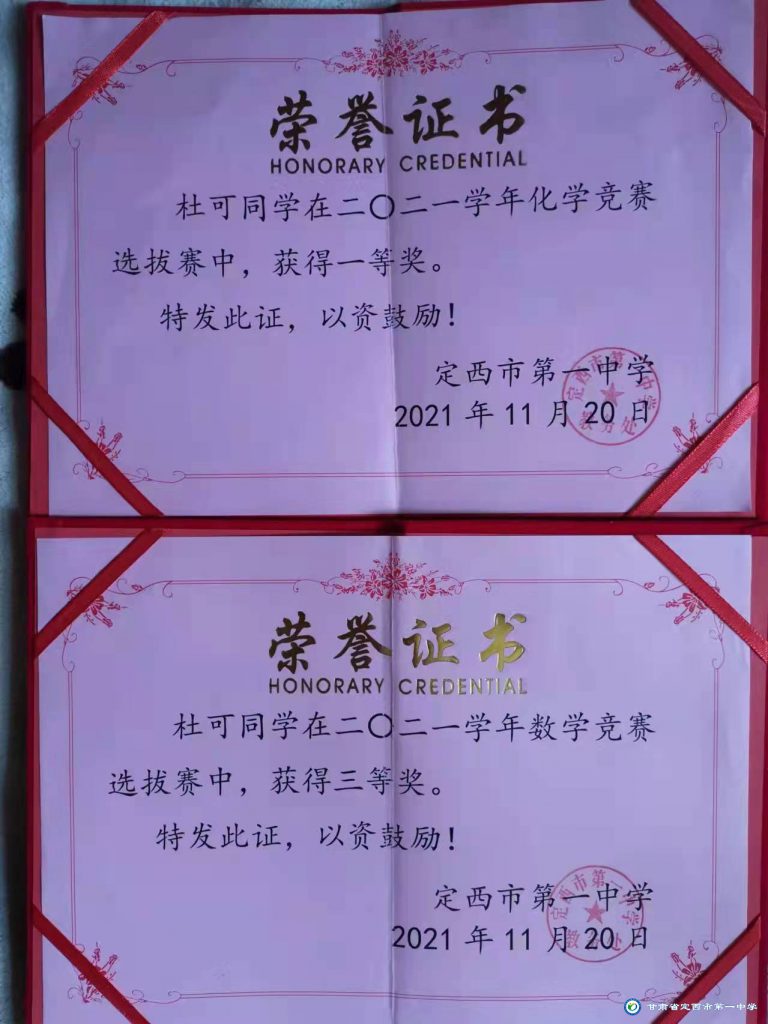 荣誉证书
HONORARY CREDENTIAL
杜可同学在二〇二一学年化学竞赛
选拔赛中，获得一等奖。
特发此证，以资鼓励！
定西市第一中学
2021年11月20日
定西市第一中学
教务处
荣誉证书
HONORARY CREDENTIAL
杜可同学在二〇二一学年数学竞赛
选拔赛中，获得三等奖。
特发此证，以资鼓励！
定西市第一中学
2021年11月20日
定西市第一中学
教务处
甘肃省定西市第一中学